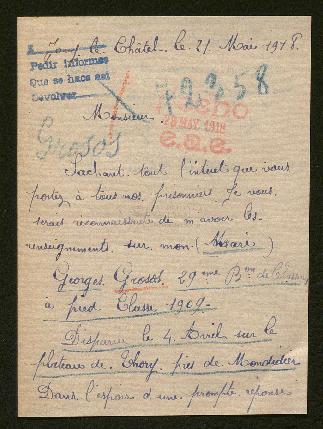 Jouy le Châtel. le 21 Mai 1918.
Pedir informes
Que se hace así
Devolver
72358
28 MAY. 1918
Monsieur
Grosos
Sachant tout l'interet que vous
portez à tous nos prisonniers Je vous
serais reconnaissante de m'avoir les
renseignements sur mon (Mari)
Georges Grosos, 29 eme Bon de Chasseurs
à pied Classe 1909-
Disparu le 4 Avril sur le
plateau de Thory près de Mondidier
Dans l'espoir d'une prompte réponse